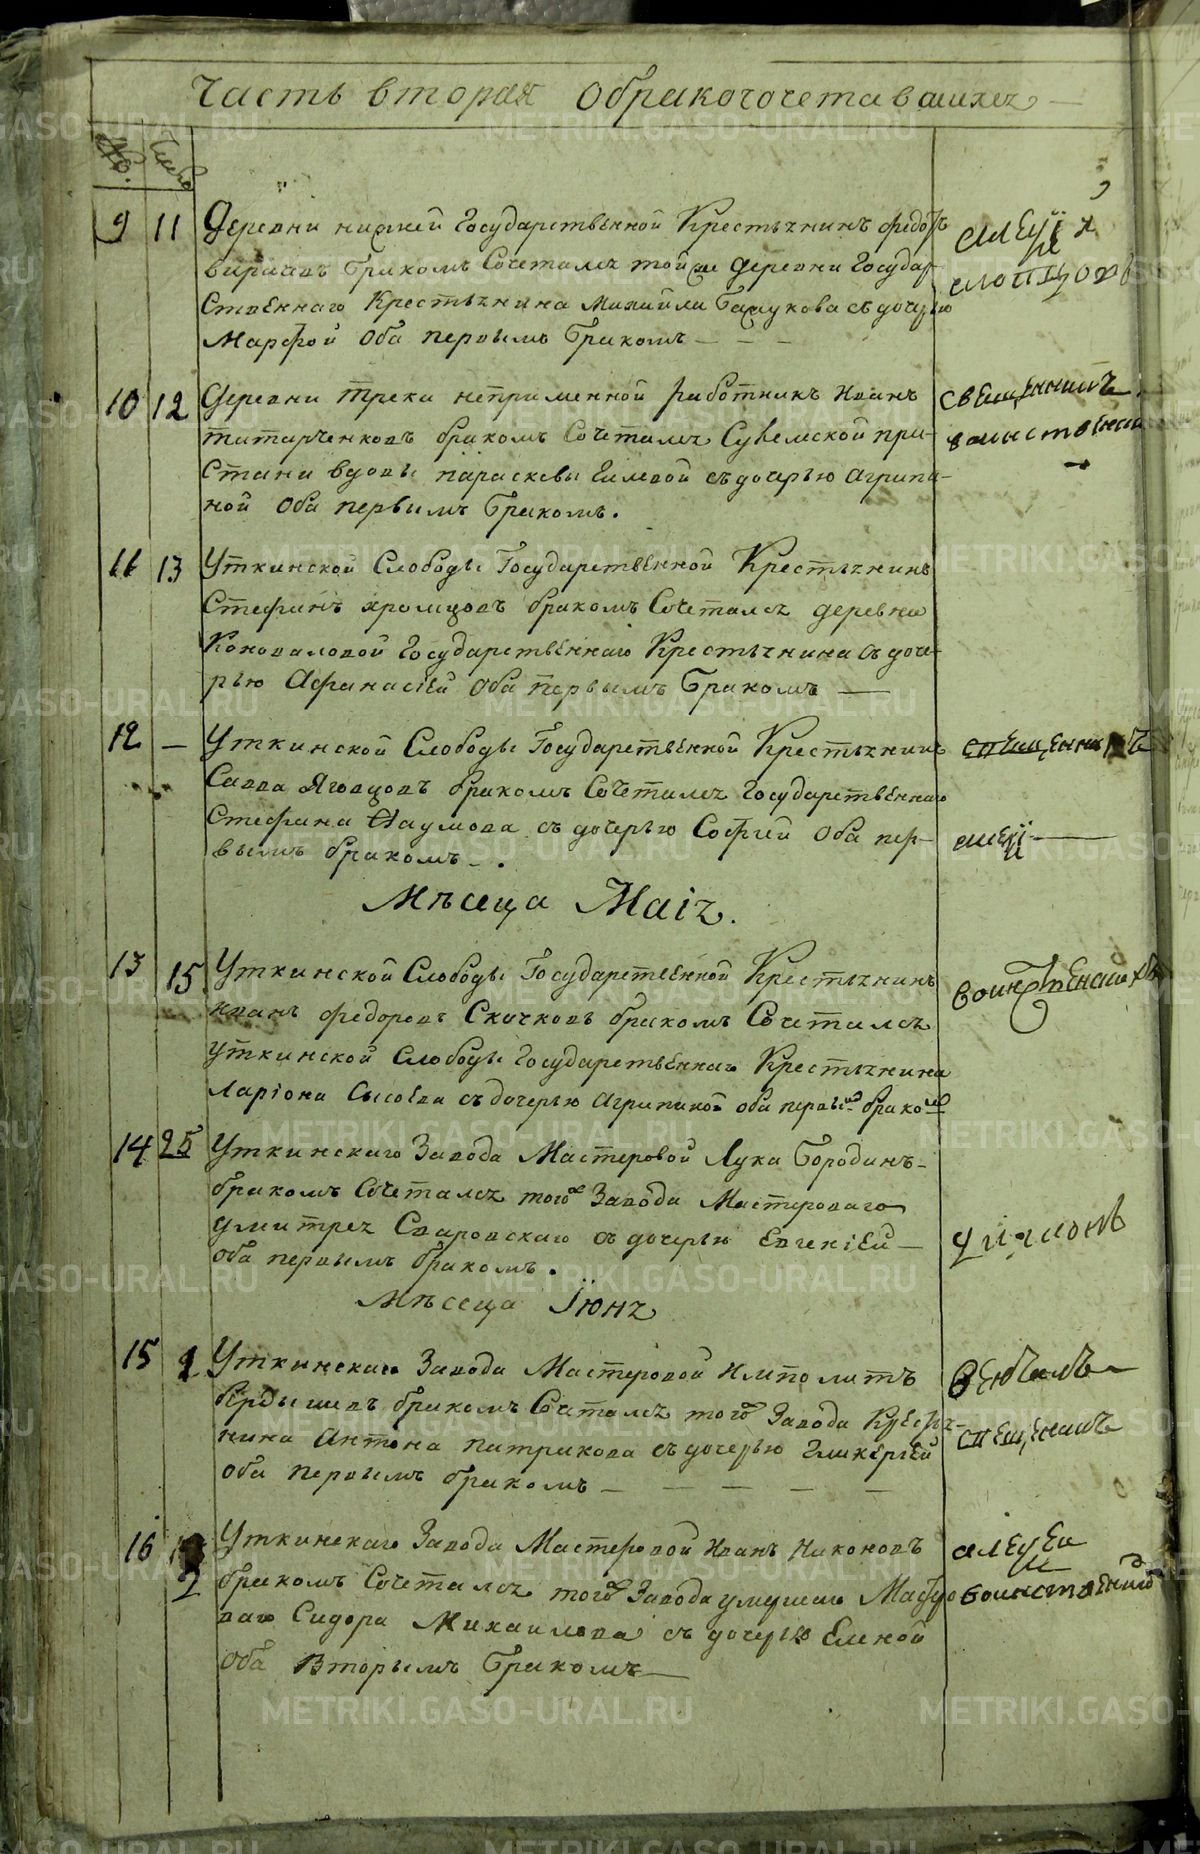 Часть вторая обракосочетавшихся
№ Число
9 11 Деревни нижней Государственной Крестьянинъ федоръ
бракомъ Сочетался тойже деревни Государ-
ственнаго Крестьянина Михайла съ дочерью
Марфой Оба первымъ бракомъ
10 12 Деревни Треки непременной работникъ Иванъ
титарченковъ бракомъ Сочетался Сулемской при-
стани вдовы параскевы съ дочерью Агрипи-
ной Оба первымъ бракомъ.
священникъ
11 13 Уткинской Слободы Государственной Крестьянинъ
Стефанъ хромцовъ бракомъ Сочетался деревни
Коноваловой Государственнаго Крестьянина съ доче-
рью Афанасіей Оба первымъ бракомъ
12 — Уткинской Слободы Государственной Крестьянинъ
Савва Яговцовъ бракомъ Сочетался Государственнаго
Стефана Наумова съ дочерью Софией Оба пер-
вымъ бракомъ.
священникъ
алеѯій
Мѣсеца Маія.
13 15 Уткинской Слободы Государственной Крестьянинъ
Иванъ федоровъ Скачковъ бракомъ Сочетался
Уткинской Слободы Государственнаго Крестьянина
Ларіона Сысоева съ дочерью Агрипиной оба первымъ бракомъ
14 25 Уткинскаго Завода Мастеровой Лука Бородинъ
бракомъ Сочетался тогоже Завода Мастероваго
Дмитрея Сваровскаго съ дочерью Евгеніей
оба первымъ бракомъ.
діяконъ
Мѣсеца Їюня
15 Уткинскаго Завода Мастеровой Ипполитъ
Бердышевъ бракомъ Сочетался тогоже Завода Крестья-
нина Антона патракова съ дочерью Гликеріей
оба первымъ бракомъ
венчалъ
священникъ
16 Уткинскаго Завода Мастеровой Иванъ Никоновъ
бракомъ Сочетался тогоже Завода умершаго Мастеро-
ваго Сидора Михаилова съ дочерью Еленой
Оба Вторымъ бракомъ